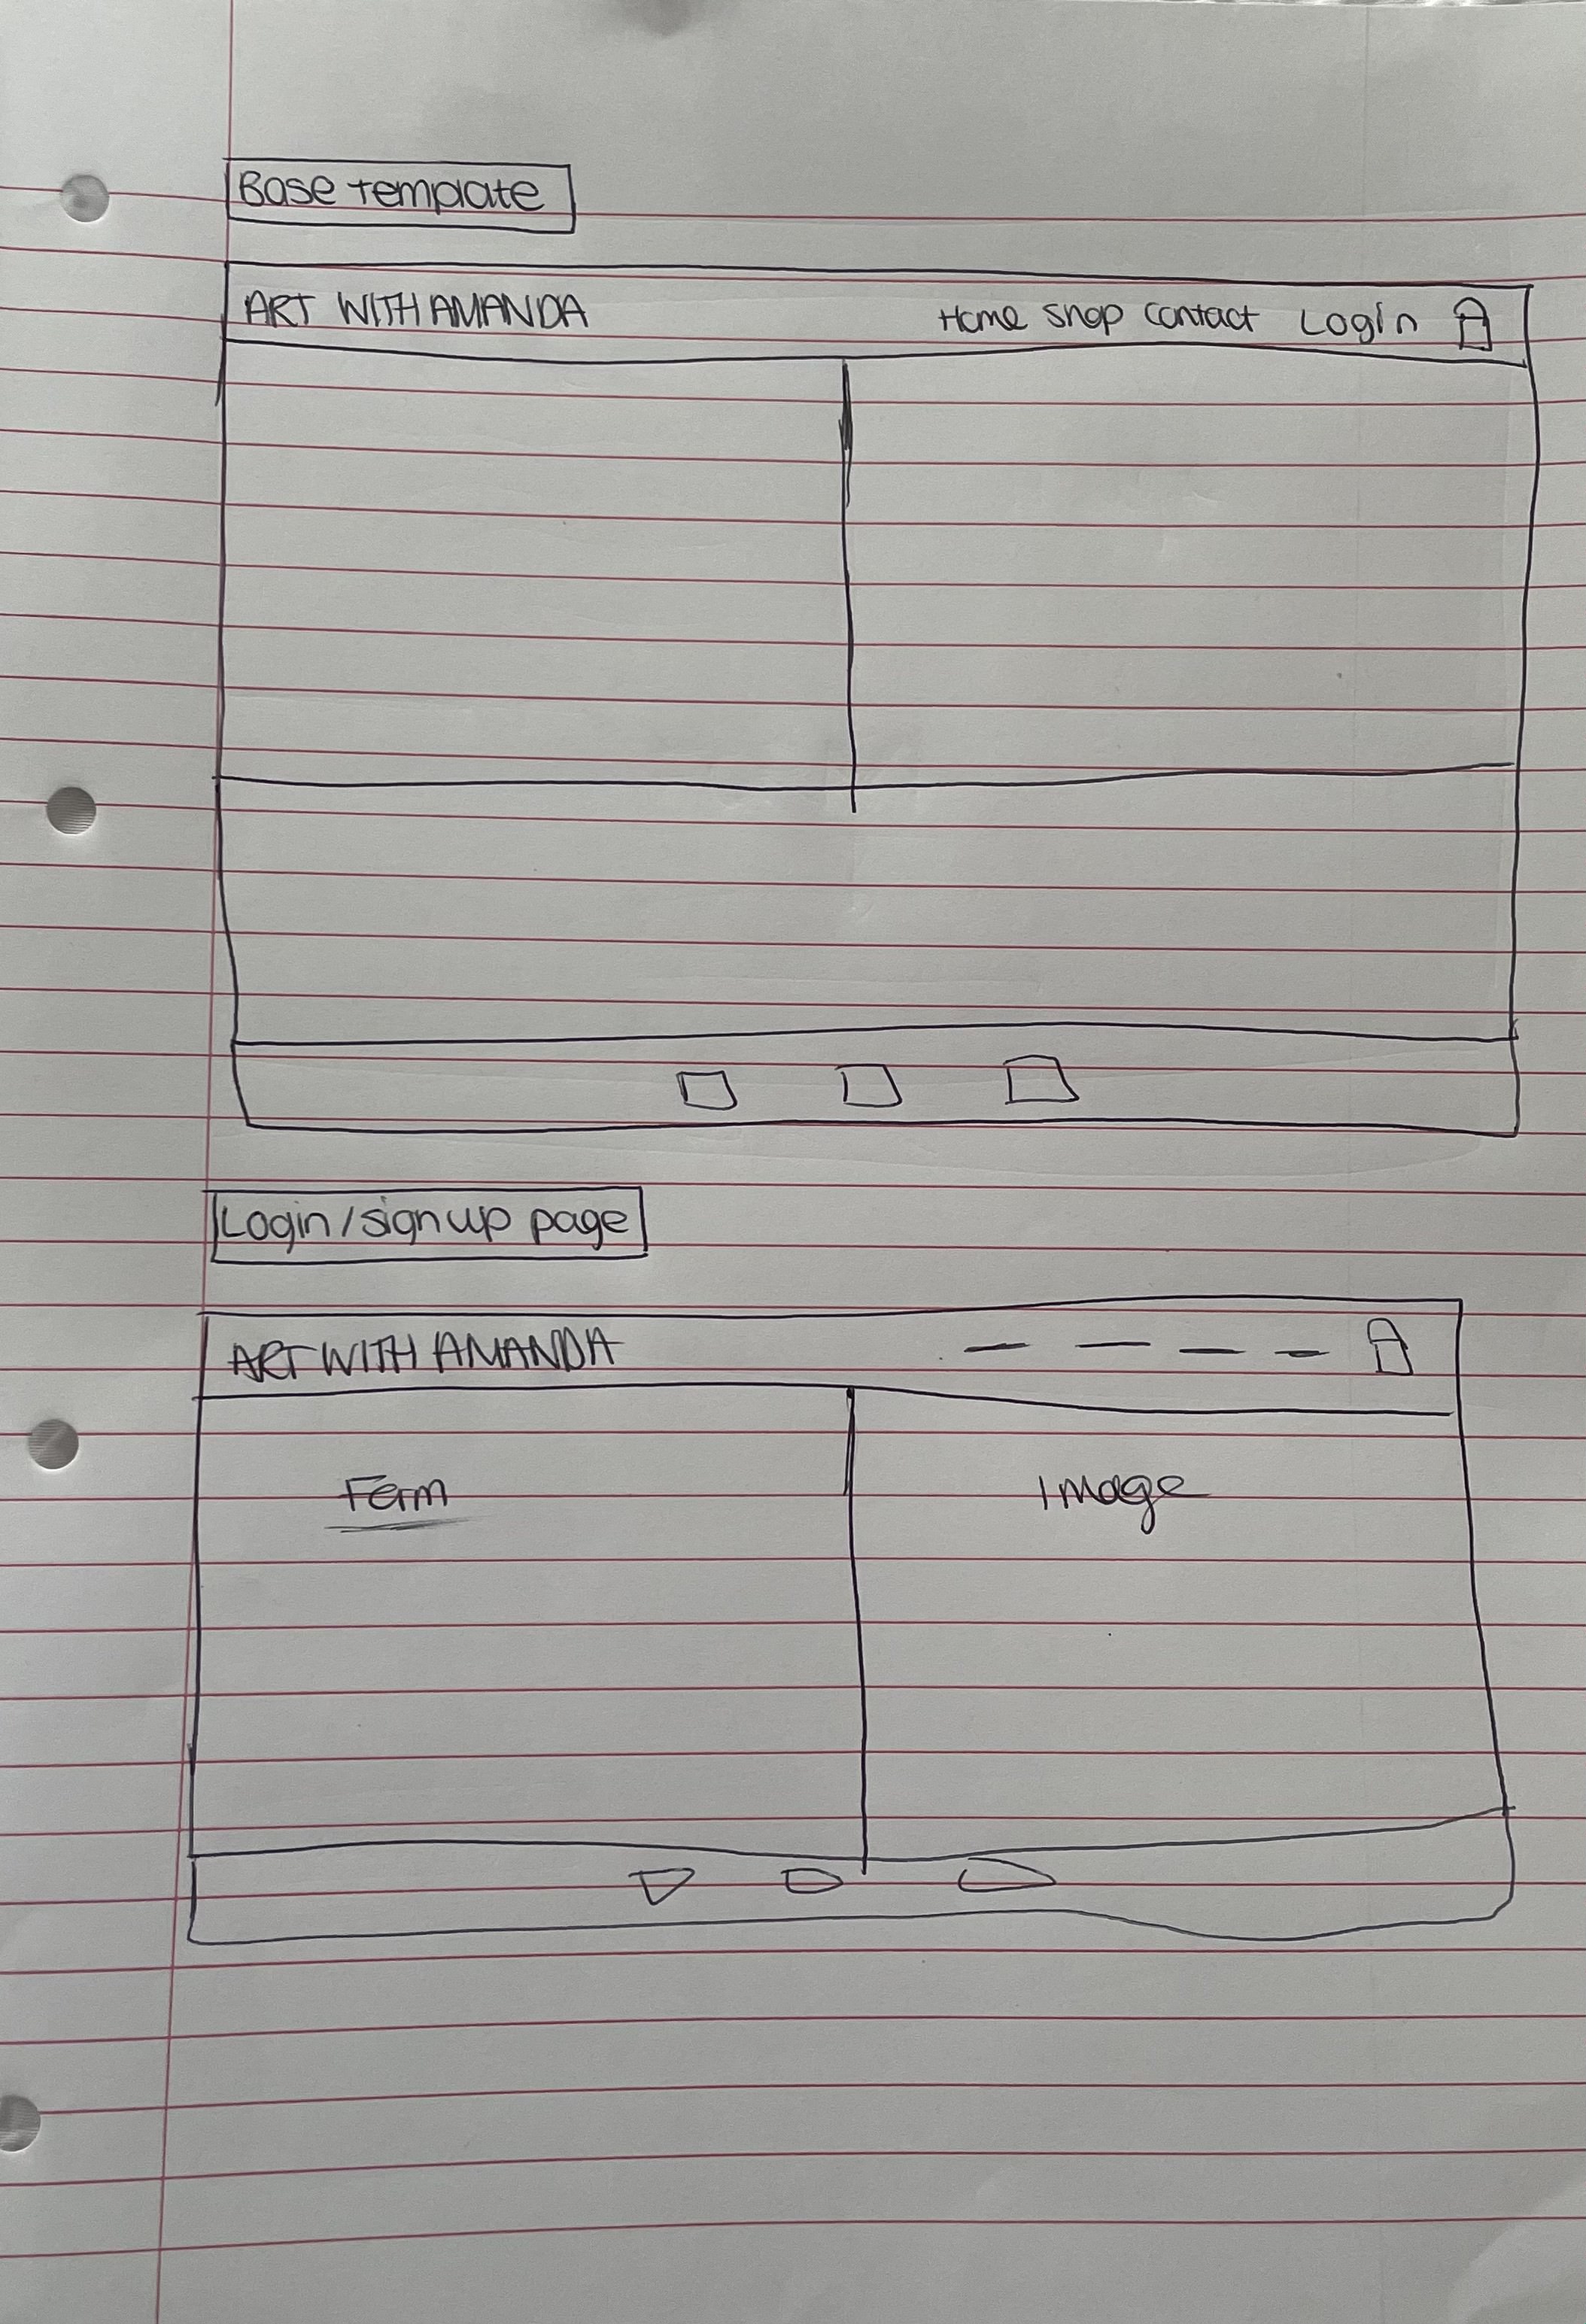 Base template
ART WITH AMANDA Home Shop Contact Login
Login/signup page
ART WITH AMANDA
Form Image